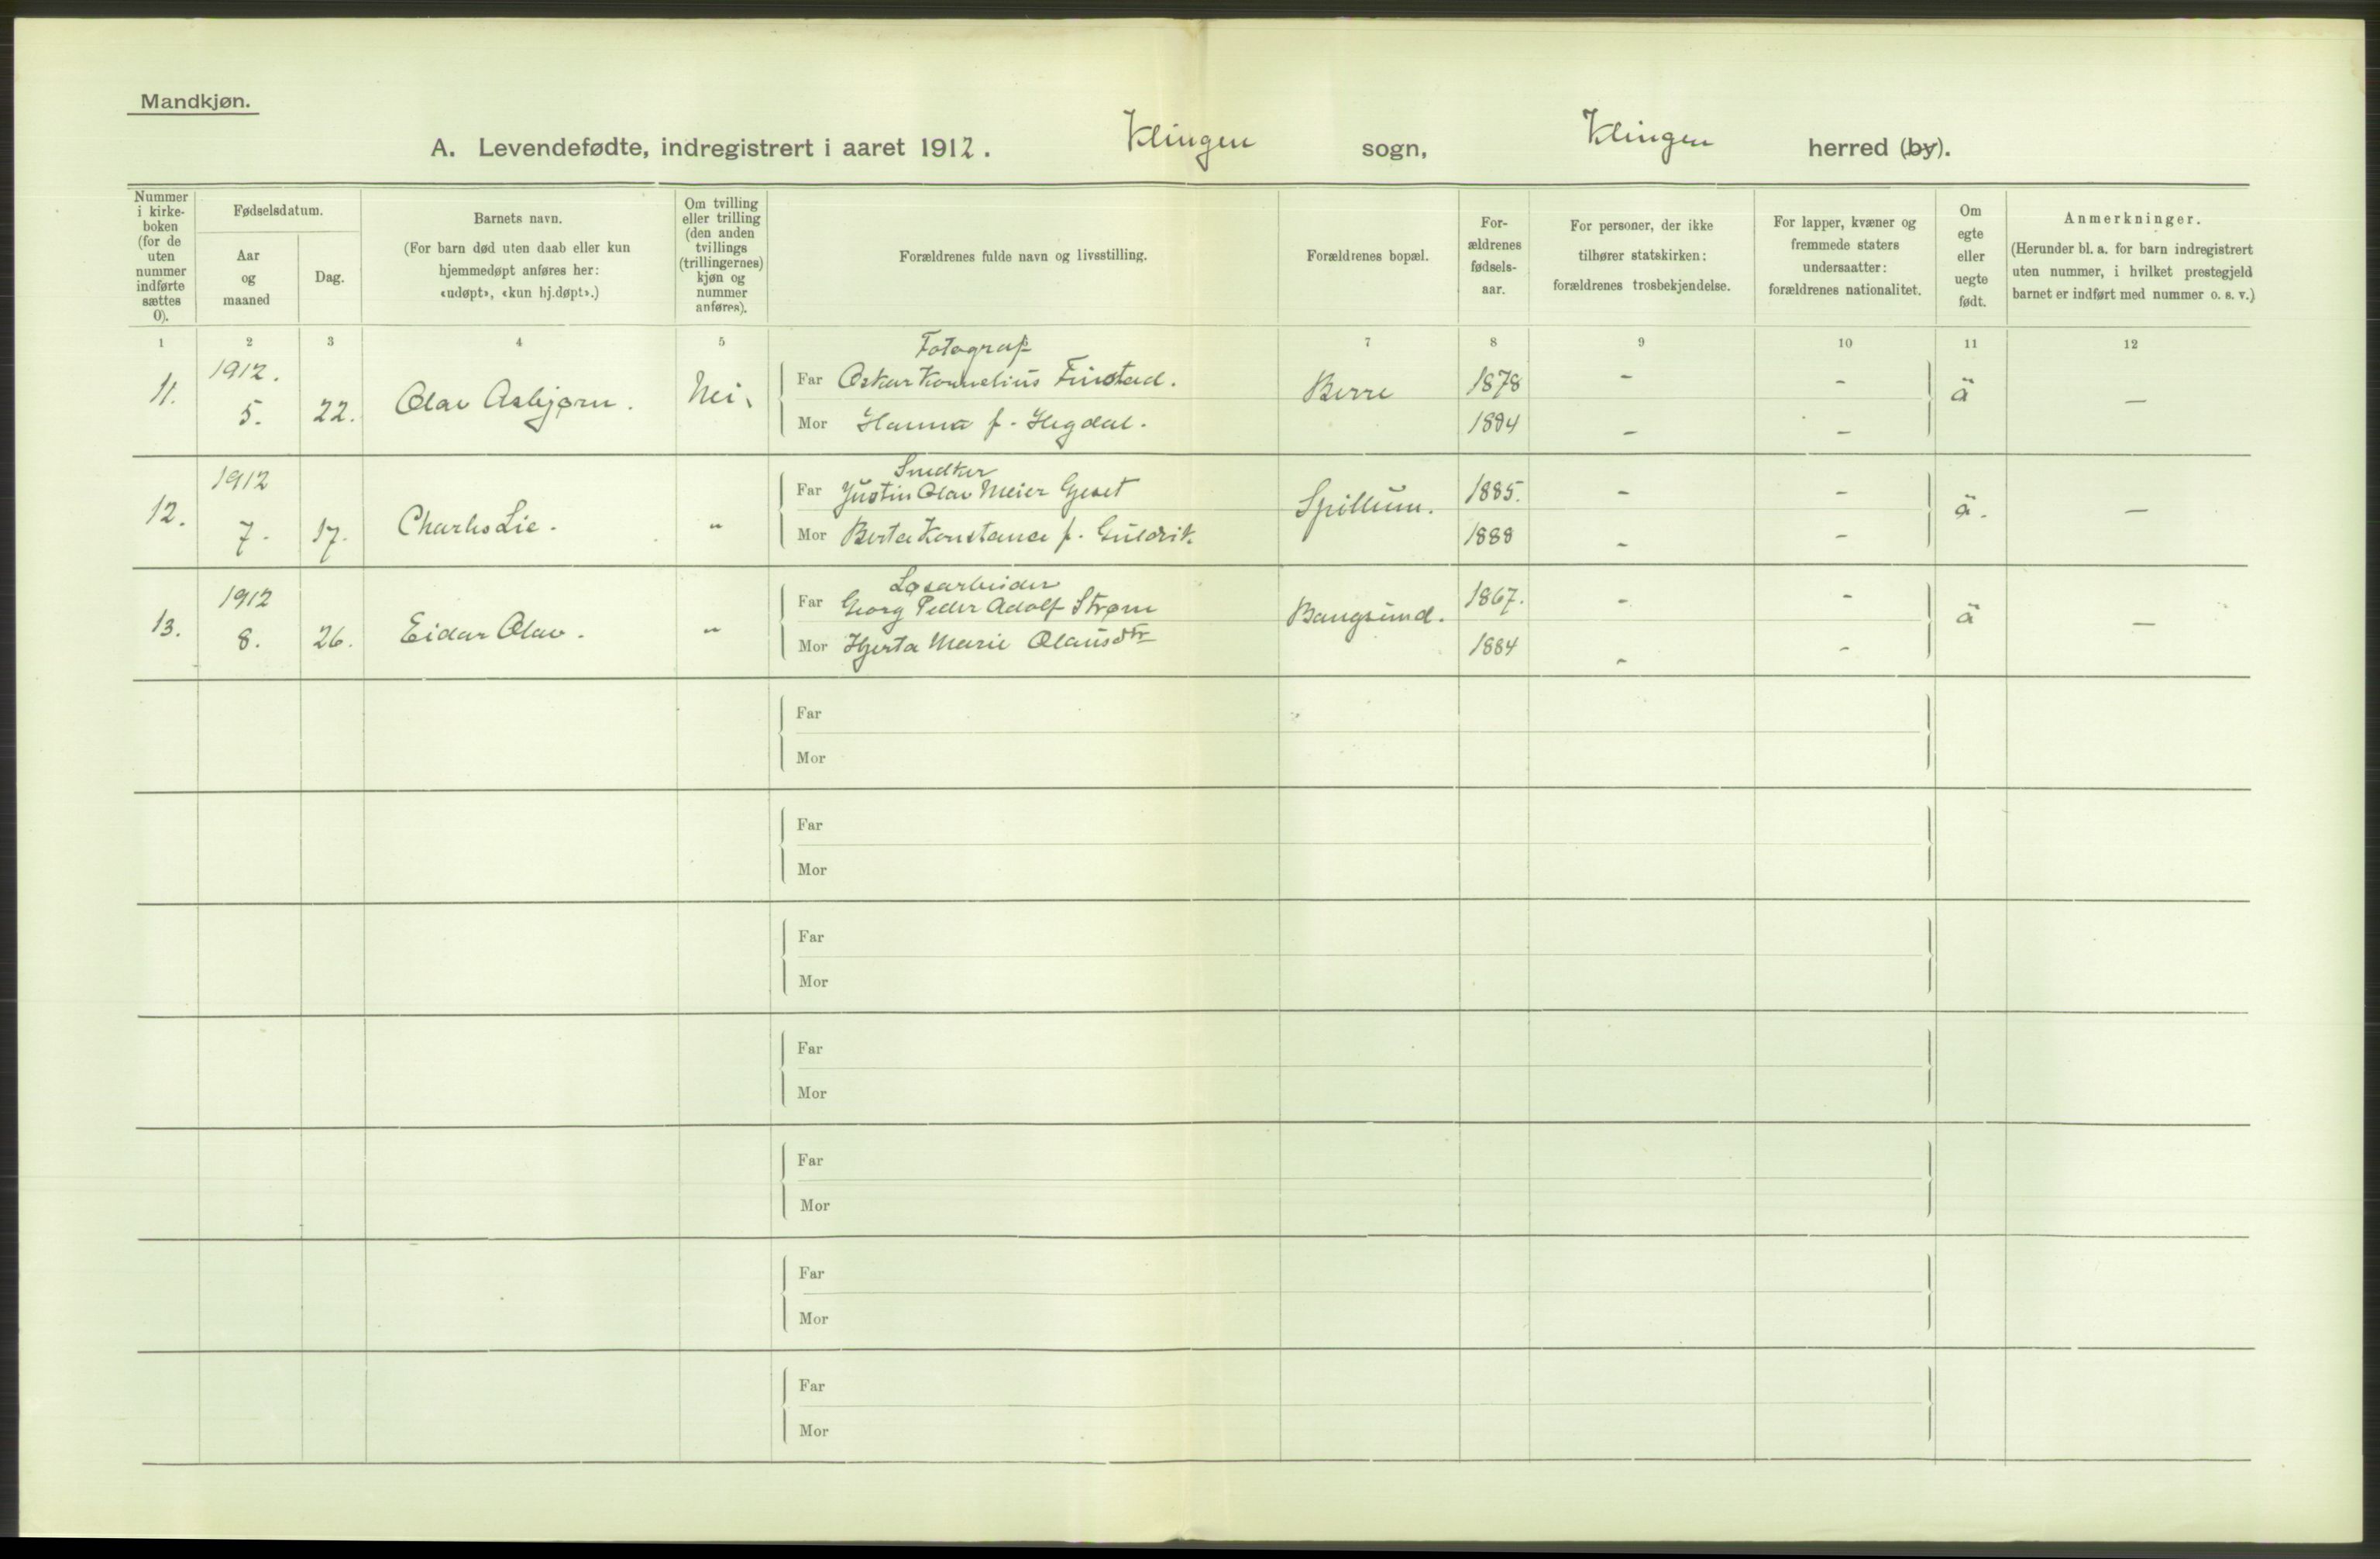 Mandkjøn.
A. Levendefødte, indregistrert i aaret 1912. Klingen sogn, Klingen herred (by).
Nummer i kirke-boken (for de uten nummer indførte sættes 0).
Fødselsdatum.
Aar og maaned
Dag.
Barnets navn.
(For barn død uten daab eller kun hjemmedøpt anføres her: «udøpt», «kun hj.døpt».)
Om tvilling eller trilling (den anden tvillings (trillingernes) kjøn og nummer anføres).
Forældrenes fulde navn og livsstilling.
Forældrenes bopæl.
For-ældrenes fødsels-aar.
For personer, der ikke tilhører statskirken: forældrenes trosbekjendelse.
For lapper, kvæner og fremmede staters undersaatter: forældrenes nationalitet.
Om egte eller uegte født.
Anmerkninger.
(Herunder bl. a. for barn indregistrert uten nummer, i hvilket prestegjeld barnet er indført med nummer o. s. v.)
1 2 3 4 5 7 8 9 10 11 12
Fotograf
11. 1912. 5. 22. Olav Asbjørn. Nei. Far Oskar Kornelius Finstad. Berre 1878 - - ä —
Mor Hanna f. Hegdal. 1884 - -
Snedker
12. 1912 7. 17. Charles Lie. " Far Justin Olav Meier Spillum. 1885. - - ä. —
Mor Berta Konstance f. 1888 - -
Løsarbeider
13. 1912 8. 26. Eidar Olav. " Far Georg Peder Adolf Strøm Bangsund. 1867. - - ä —
Mor Hjerta Marie Olausdtr 1884 - -
Far
Mor
Far
Mor
Far
Mor
Far
Mor
Far
Mor
Far
Mor
Far
Mor